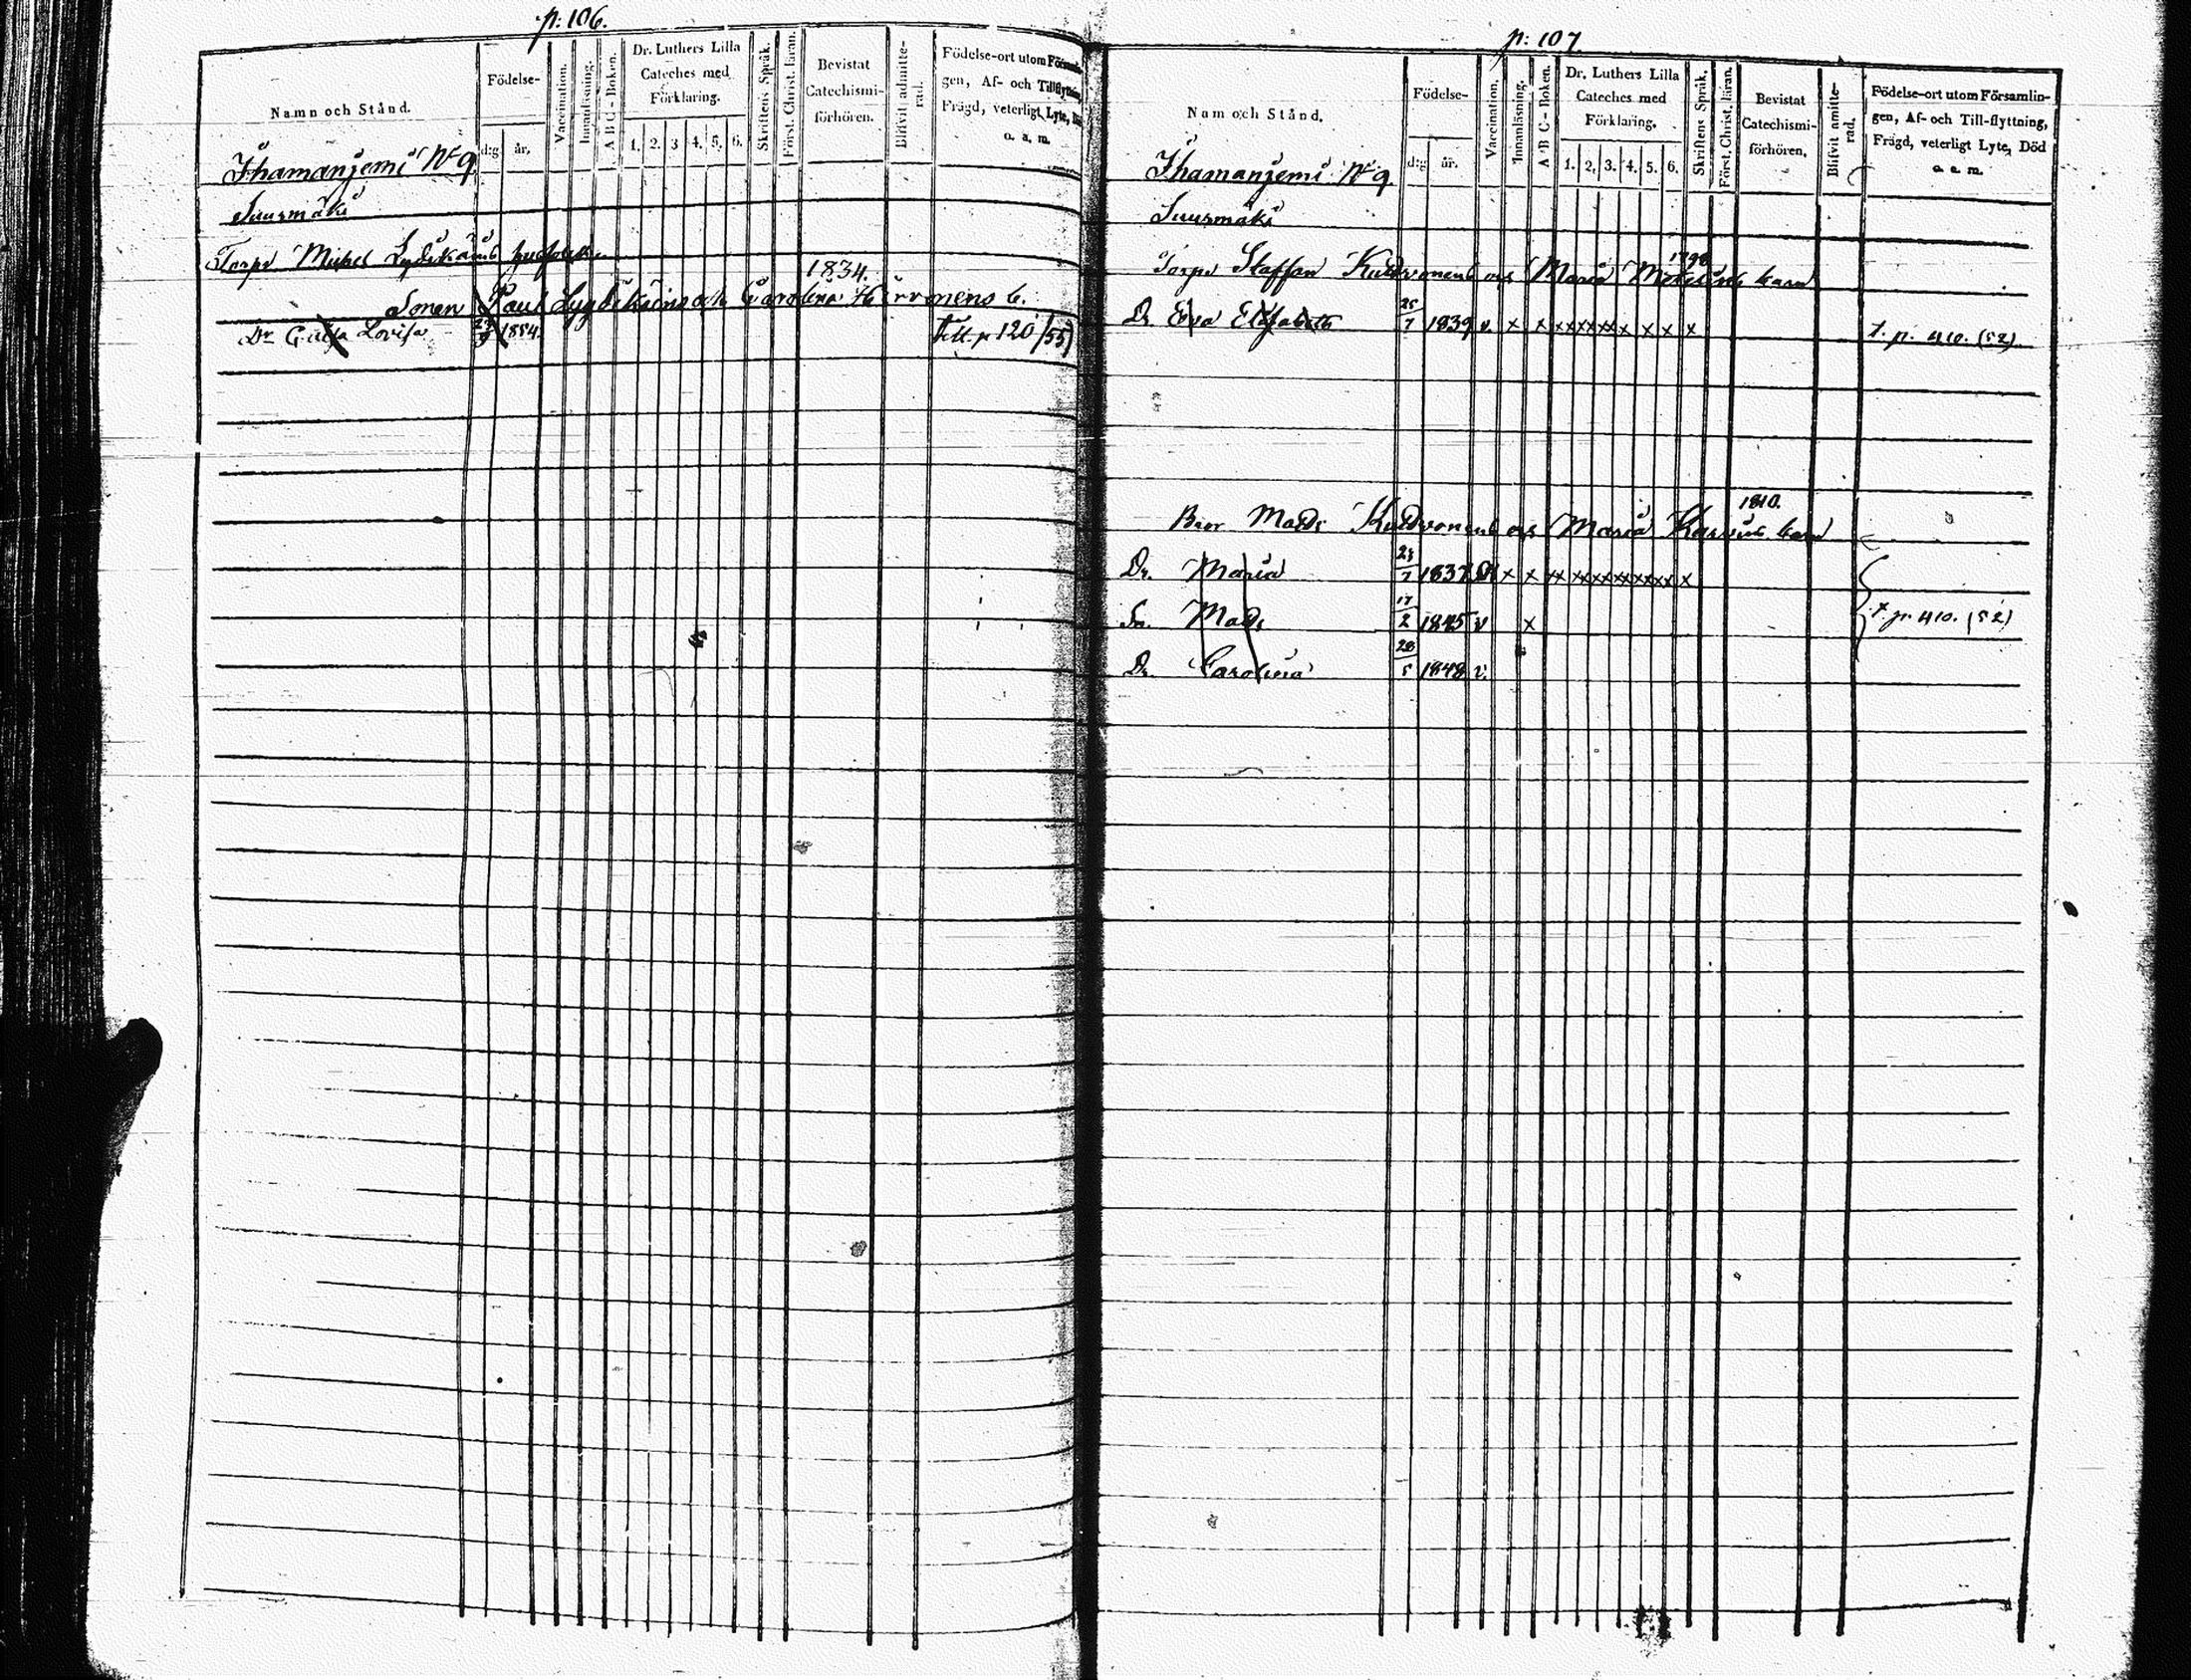 p: 106.
Namn och Stånd.
Födelse-
d:g
år.
Vaccination.
Innanläsning.
A B C - Boken.
Dr. Luthers Lilla
Cateches med
Förklaring.
1. 2. 3 4. 5. 6.
Skriftens Språk.
Först. Christ. läran.
Bevistat
Catechismi-
förhören.
Blifvit admitte-
rad.
Födelse-ort utom Församlin-
gen, Af- och Tillflyttning
Frägd, veterligt Lyte,
o. a. m.
Ihamaniemi N:o 9
Suurmäki
Torpr Mickel
1834.
Sonen Paul och Carolina Hirvonens b.
Dr Lovisa 1854. till p 120 /55)
p: 107
Nam och Stånd.
Födelse-
d:g
år.
Vaccination.
Innanläsning.
A B C - Boken.
Dr. Luthers Lilla
Cateches med
Förklaring.
1. 2. 3. 4. 5. 6.
Skriftens Språk.
Först. Christ. läran.
Bevistat
Catechismi-
förhören.
Blifvit amitte-
rad.
Födelse-ort utom Församlin-
gen, Af- och Till-flyttning,
Frägd, veterligt Lyte, Död
o. a. m.
Ihamaniemi N:o 9.
Suurmäki
1798
Torpr Staffan och Maria barn
Dr. Eva Elisabeth 25/7 1839 v. x x xxxxxxx x x x t. p. 410. (52)
1810.
Bror Mads och Maria barn
Dr. Maria 1837 x x xx xxxxxxxxxx x
Sn. Mads 17/2 1845 v x t. p. 410. (52)
Dr. Carolina 28/5 1848 v.